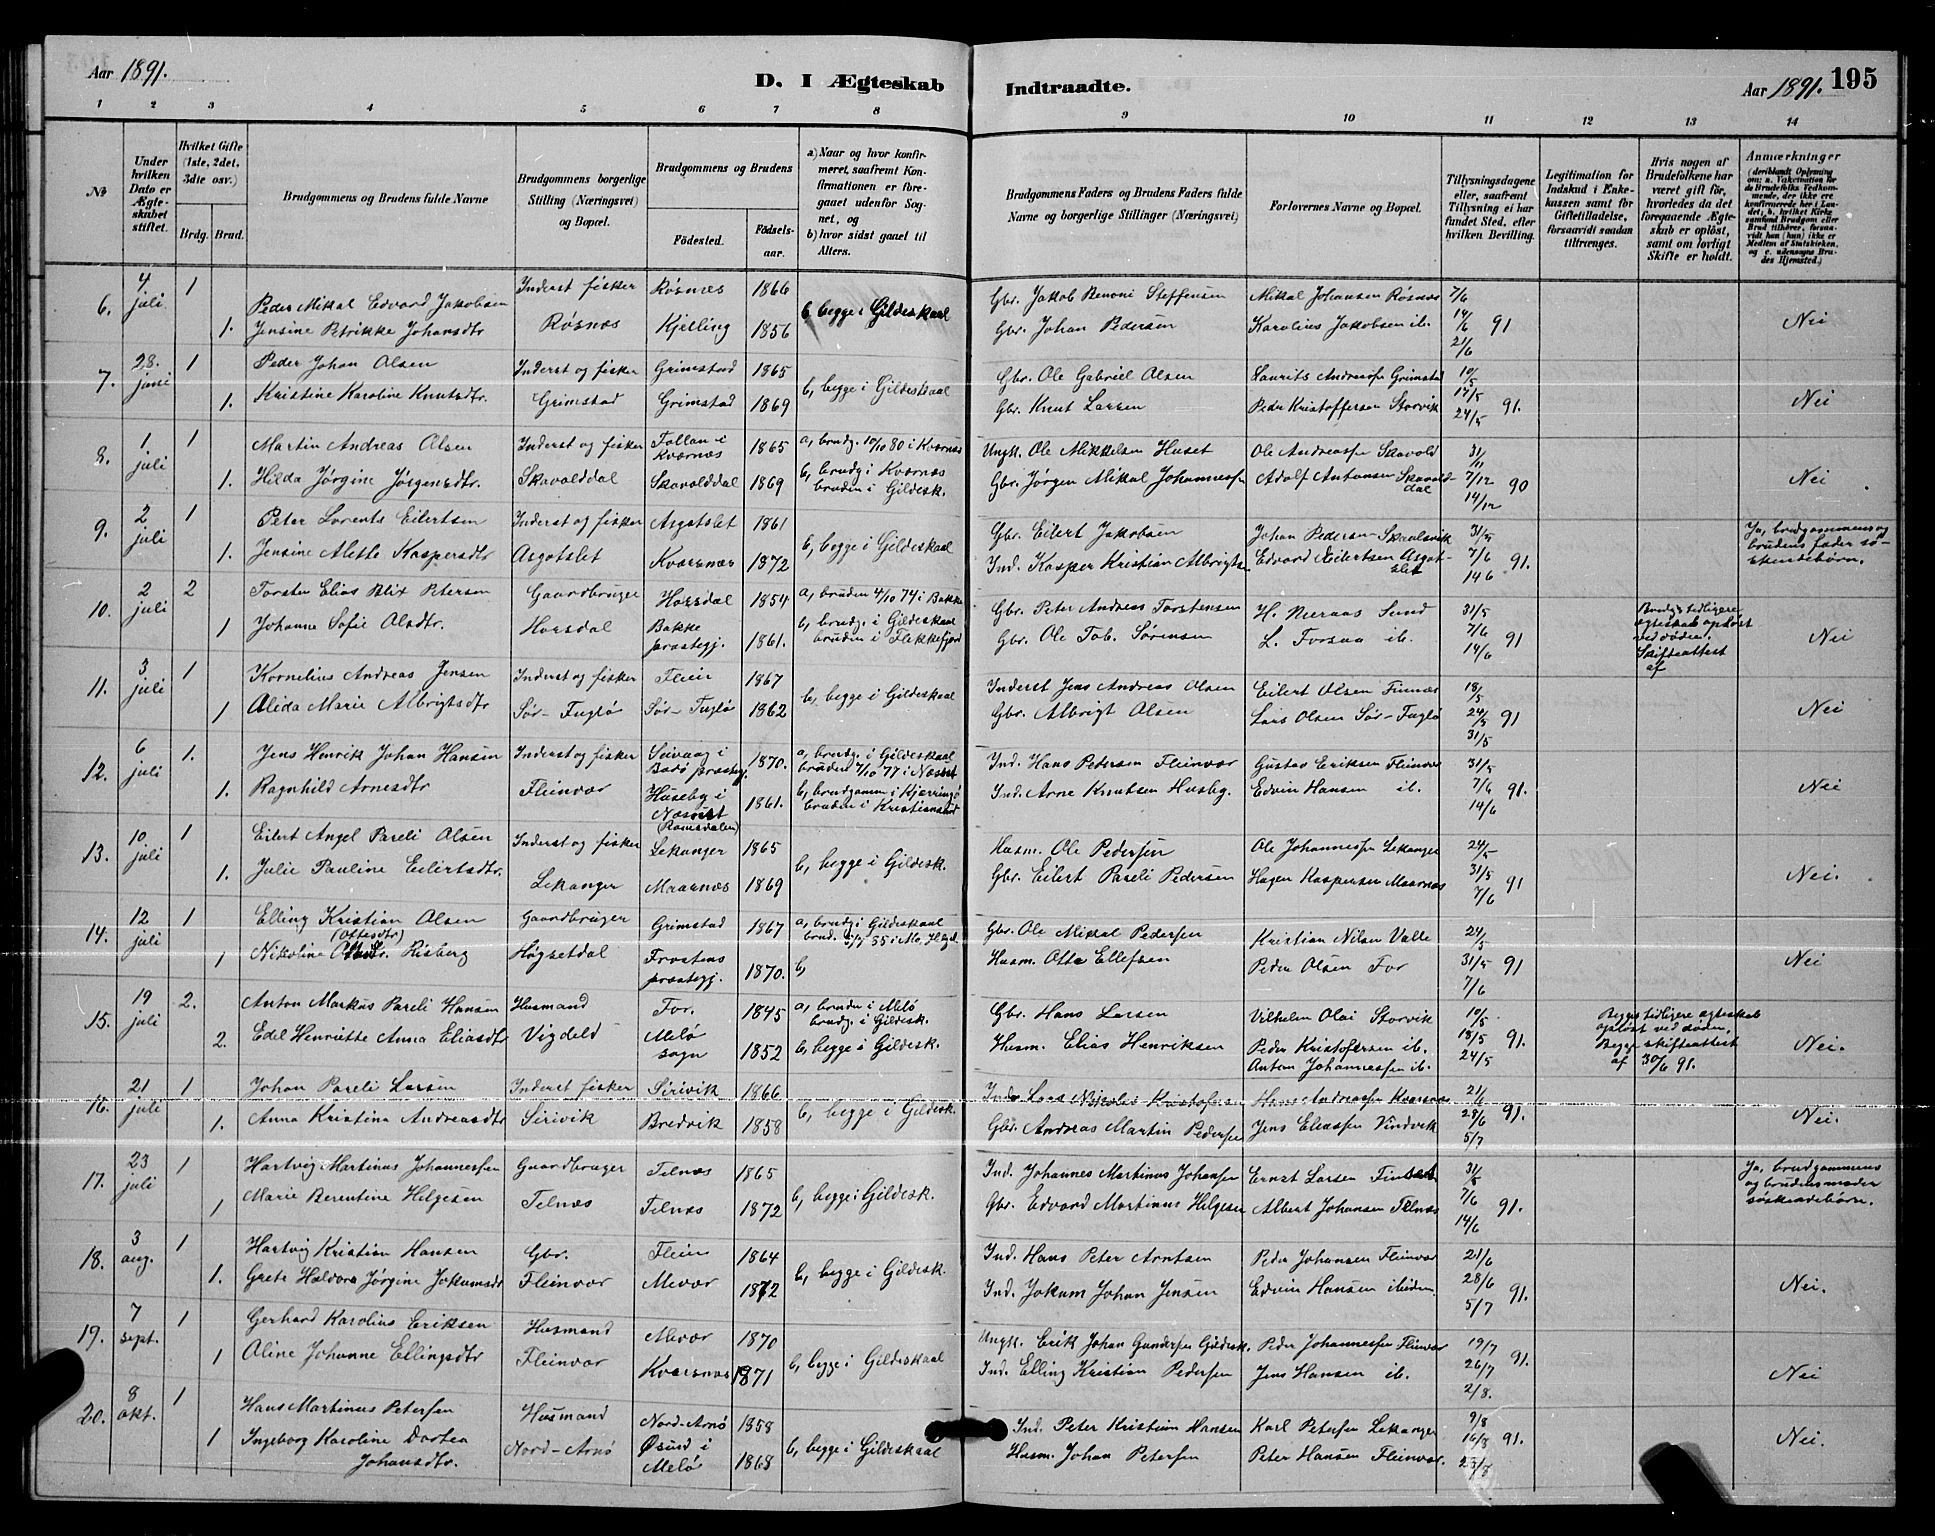 Aar 1891.
D. I Ægteskab Indtraadte.
Aar 1891. 195
1 2 3 4 5 6 7 8 9 10 11 12 13 14
№
Under hvilken Dato er Ægteskabet stiftet.
Hvilket Gifte (1ste, 2det, 3die osv.)
Brdg. Brud.
Brudgommens og Brudens fulde Navne
Brudgommens borgerlige Stilling (Næringsvei) og Bopæl.
Brudgommens og Brudens
Fødested. Fødselsaar.
a) Naar og hvor konfirmeret, saafremt Konfirmationen er foregaaet udenfor Sognet, og
b) hvor sidst gaaet til Alters.
Brudgommens Faders og Brudens Faders fulde Navne og borgerlige Stillinger (Næringsvei)
Forlovernes Navne og Bopæl.
Tillysningsdagene eller, saafremt Tillysning ei har fundet Sted, efter hvilken Bevilling.
Legitimation for Indskud i Enkekassen samt for Giftetilladelse, forsaavidt saadan tiltrænges.
Hvis nogen af Brudefolkene har været gift før, hvorledes da det foregaaende Ægteskab er opløst, samt om lovligt Skifte er holdt.
Anmærkninger (deriblandt Oplysning om: a. Vakcination for de Brudefolks Vedkommende, der ikke ere konfirmerede her i Landet; b. hvilket Kirkesamfund Brudgom eller Brud tilhører, forsaavidt han (hun) ikke er Medlem af Statskirken, og c. udensogns Brudes Hjemsted.)
6. 4 juli 1 Peder Mikal Edvard Jakobsen Inderst fisker Røsnes 1866 b, begge i Gildeskaal Gbr. Jakob Benoni Steffensen Mikal Johansen Røsnæs 7/6
1. Jensine Petrikke Johansdtr Røsnæs Kjelling 1856 Gbr. Johan Pedersen Karolius Jakobsen ib. 14/6 91 Nei
21/6
7. 28. juni 1 Peder Johan Olsen Inderst og fisker Grimstad 1865 b, begge i Gildeskaal Gbr. Ole Gabriel Olsen Laurits Andreasse Grimstad 10/5
1. Kristine Karoline Knutsdtr. Grimstad Grimstad 1869 Gbr. Knut Larsen Peder Kristoffersen Storvik 17/5 91. Nei
24/5
8. 1 juli 1 Martin Andreas Olsen Inderst og fisker Follan i Kværnes 1865 a, brudg. 10/10 80 i Kværnæs Ungk. Ole Mikkelsen Huset Ole Andreasse Skavold 31/11
1. Hilda Jørgine Jørgensdtr. Skavolddal Skavolddal 1869 b, brudg i Kværnæs bruden i Gildesk. Gbr. Jørgen Mikal Johannessen Adolf Antonsen Skavolddal 7/12 90 Nei
14/12
9. 2 juli 1 Peter Lorents Eilertsen Inderst og fisker Asgotslet 1861 b, begge i Gildeskaal Gbr. Eilert Jakobsen Johan Pedersen Skaulsvik 31/5 Ja, brudgommens og brudens fader søskendebørn.
1. Jensine Alette Kaspersdtr Asgotslet Kværnæs 1872 Ind. Kasper Kristian Albrigtsen Edvard Eilertsen Asgotslet 7/6 91.
14 6
10. 2 juli 2 Torsten Elias Blix Petersen Gaardbruger Horsdal 1854 a, bruden 4/10 74 i Bakke Gbr. Peter Andreas Torstensen H. Nieraas Sund 31/5 Brudg's tidligere ægteskab opløst ved døden. Skifteattest af
1 Johanne Sofie Olsdtr. Horsdal Bakke præstegj. 1861. b, brudg. i Gildeskaal bruden i Flekkefjord Gbr. Ole Tob. Sørensen L. Forsaa ib. 7/6 91 Nei
14/6
11. 3 juli 1 Kornelius Andreas Jensen Inderst og fisker Flein 1867 b, begge i Gildeskaal Inderst Jens Andreas Olsen Eilert Olsen Finnæs 18/5
1 Alida Marie Albrigtsdtr Sør-Fuglø Sør-Fuglø 1862 Gbr. Albrigt Olsen Lars Olsen Sør-Fuglø 24/5 91 Nei
31/5
12. 6 juli 1. Jens Henrik Johan Hansen Inderst og fisker Seivaag i Bodø præstegj. 1870. a, brudg. i Gildeskaal bruden 7/10 77 i Næsset Ind. Hans Pedersen Fleinvær Gustav Eriksen Fleinvær 31/5
1. Ragnhild Arnesdtr Fleinvær Huseby i Næsset (Romsdalen) 1861. b, brudgomm i Kjærringø bruden i Kristiansund Ind. Arne Knutsen Husby. Edvin Hansen ib. 7/6 91. Nei
14/6
13. 10 juli 1 Eilert Angel Pareli Olsen Inderst og fisker Lekanger 1865 b, begge i Gildesk. Husm. Ole Pedersen Ole Johannesse Lekanger 24/5
1. Julie Pauline Eilertsdtr. Lekanger Maarnæs 1869 Gbr. Eilert Pareli Pedersen Hagen Kaspersen Maarnæs 31/5 91 Nei.
7/6
14. 12 juli 1 Elling Kristian Olsen Gaardbruger Grimstad 1867 a, brudg i Gildeskaal Gbr. Ole Mikal Pedersen Kristian Nilsen Valle 24/5
1 Nikoline (Ottesdtr) Risberg Høgsetdal Frostens præstegj. 1870. b, Husm. Otte Ellefsen Peder Olsen For 31/5 91 Nei
7/6
15. 19 juli 2. Anton Markus Pareli Hansen Husmand For. 1845 a, bruden i Melø brudg. i Gildesk. Gbr. Hans Larsen Vilhelm Olai Storvik 10/5 Begges tidligere ægteskab opløst ved døden, Begge skifteattest af 30/6 91.
2. Edel Henriette Anna Eliasdtr Vigdeld Melø sogn 1852 b, begge i Gildesk. Husm. Elias Henriksen Peder Kristofersen ib. 18/5 91. Nei.
Anton Johannessen ib. 24/5
16. 21 juli 1 Johan Pareli Larsen Inderst fisker Sirivik 1866 b, begge i Gildesk. Ind. Lars Nikolai Kristofersen Hans Andreassen Kværnæs 21/6
1. Anna Kristina Andreasdtr Sirivik Bredvik 1858 Gbr. Andreas Martin Pedersen Jens Eliassen Vindvik 28/6 91. Nei.
5/7
17. 23 juli 1 Hartvig Martinus Johannessen Gaardbruger Telnæs 1865 b, begge i Gildesk. Ind. Johannes Martinus Johansen Ernst Larsen 31/5 Ja, brudgommens og brudens moder søskendebørn.
1 Marie Berentine Helgesen Telnæs Telnæs 1872 Gbr. Edvard Martinus Helgesen Albert Johansen Telnæs 7/6 91.
14/6
18. 3 aug. 1 Hartvig Kristian Hansen Gbr. Flein 1864 b, begge i Gildesk. Ind. Hans Peter Arntsen Peder Johansen Fleinvær 21/6
1. Grete Haldora Jørgine Jokumsdtr Fleinvær Mevær 1872 Ind. Jokum Johan Jensen Edvin Hansen ibiden 28/6 91. Nei.
5/7
19. 7 sept. 1 Gerhard Karolius Eriksen Husmand Mevær 1870 b, begge i Gildeskaal Ungk. Erik Johan Gundersen Gildesk. Peder Johannessen Fleinvær 19/7
1 Aline Johanne Ellingsdtr Fleinvær Kværsnæs 1871 Ind. Elling Kristian Pedersen Jens Hansen ib. 26/7 91. Nei
2/8.
20. 8 okt. 1 Hans Martinus Petersen Husmand Nord-Arnø 1858 b, begge i Gildeskaal Ind. Peter Kristian Hansen Karl Petersen Lekanger 9/8
1 Ingeborg Karoline Dortea Johansdtr. Nord-Arnø Øsund i Melø 1868 Husm. Johan Petersen Peter Hansen Fleinvær. 16/8 91. Nei.
23/8